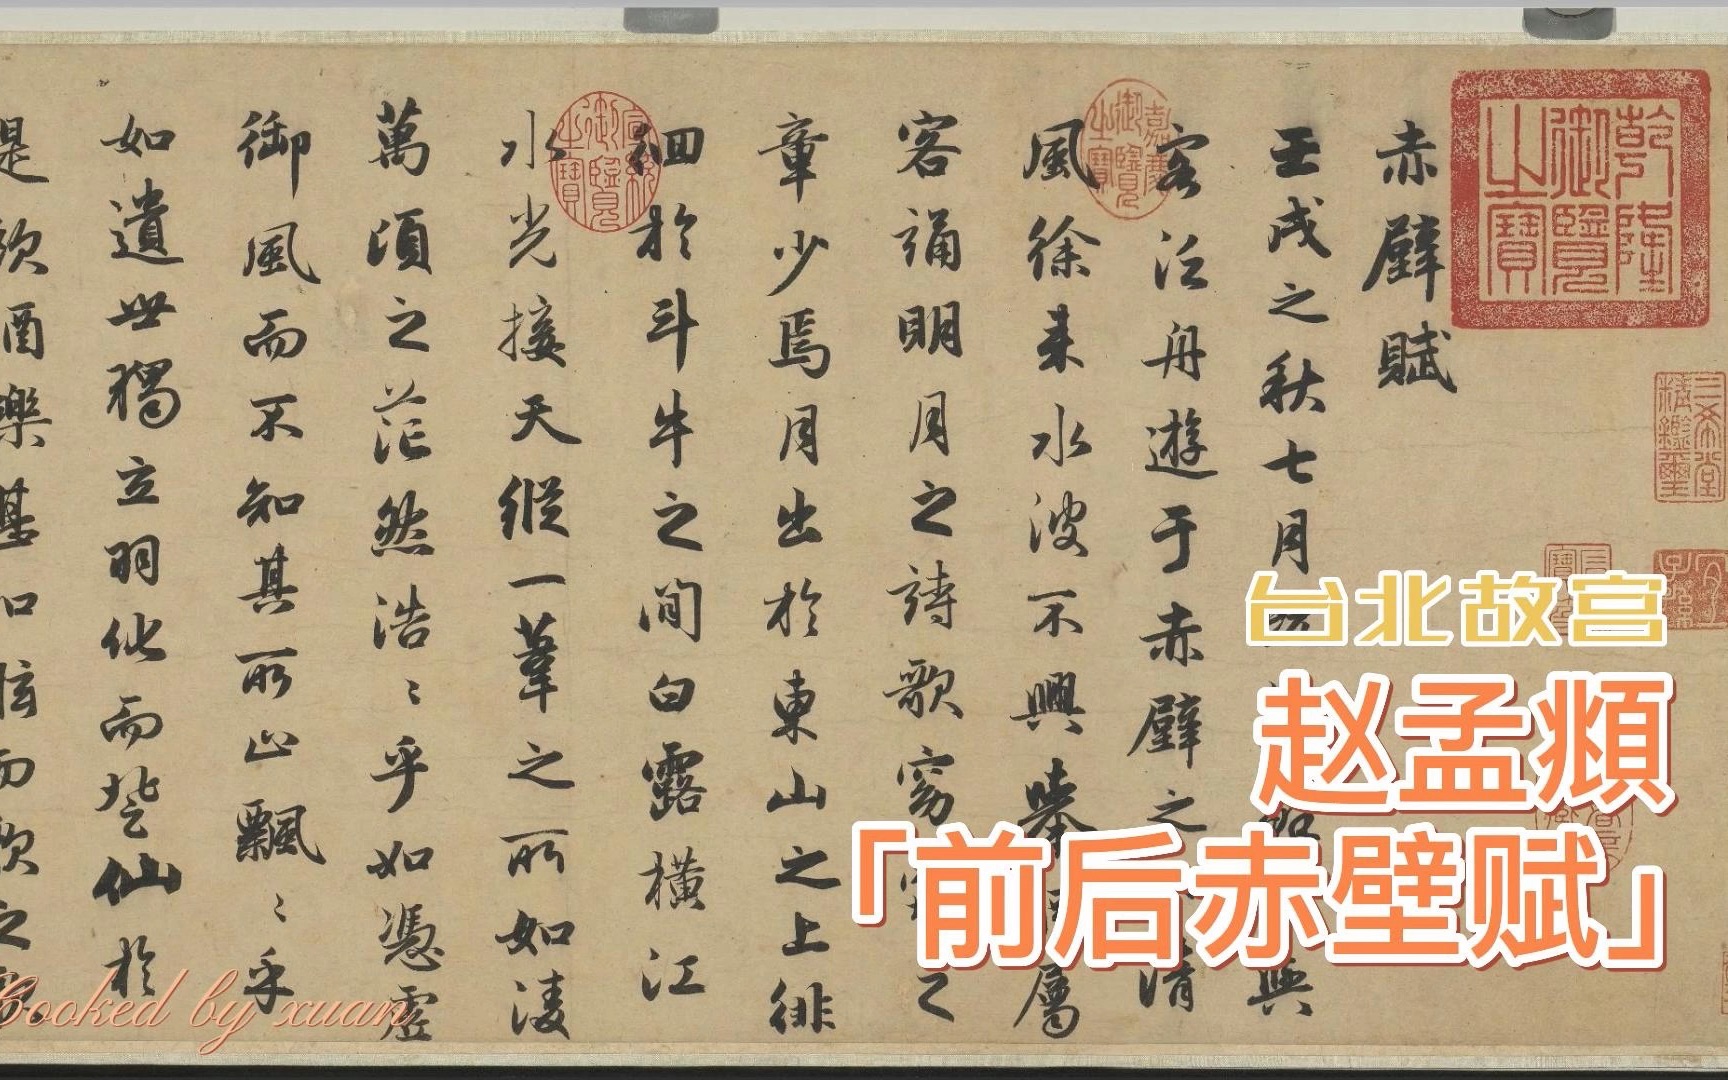 乾隆御覽之寶
三希堂精鑑璽
宜子孫
赤壁賦
壬戌之秋七月 與
嘉慶御覽之寶
客泛舟遊于赤壁之 清
風徐来水波不興舉 屬
客誦明月之詩歌窈 之
章少焉月出於東山之上徘
宣統御覽之寶
徊於斗牛之間白露橫江
水光接天縱一葦之所如凌
萬頃之茫然浩〻乎如憑虛
御風而不知其所止飄〻乎
如遺世獨立羽化而登仙於
是飲酒樂甚扣舷而歌之
台北故宫
赵孟頫
「前后赤壁赋」
Cooked by xuan